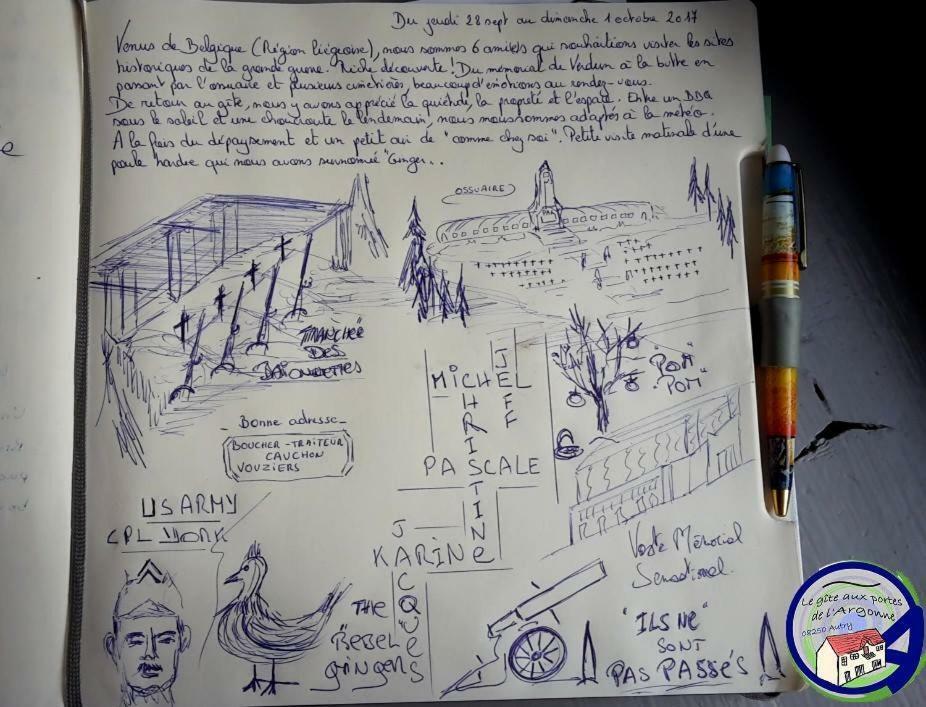 Du jeudi 28 sept au dimanche 1 octobre 2017
Venus de Belgique (Région liégeoise), nous sommes 6 amis qui souhaitions visiter les sites
historiques de la grande guerre. Riche découverte! Du mémorial de Verdun à la butte en
passant par l'ossuaire et plusieurs cimetières, beaucoup d'émotions au rendez-vous.
De retour au gîte, nous y avons apprécié la quiétude, la propreté et l'espace. Entre un BBQ
sous le soleil et une choucroute le lendemain, nous nous sommes adaptés à la météo.
A la fois du dépaysement et un petit air de "comme chez soi". Petite visite matinale d'une
poule hardie qui nous avons surnommé "Ginger"..
OSSUAIRE
TRANCHÉE
DES
BAÏONNETTES
MICHEL
JEFF
CHRISTINE
PASCALE
KARINE
JACQUES
POM
POM
Bonne adresse
BOUCHER-TRAITEUR
CAUCHON
VOUZIERS
US ARMY
CPL YORK
THE
GINGERS
Visite Mémorial
Sensationnel.
"ILS NE"
SONT
PAS PASSÉS
Le gîte aux portes
de l'Argonne
08250 Autry